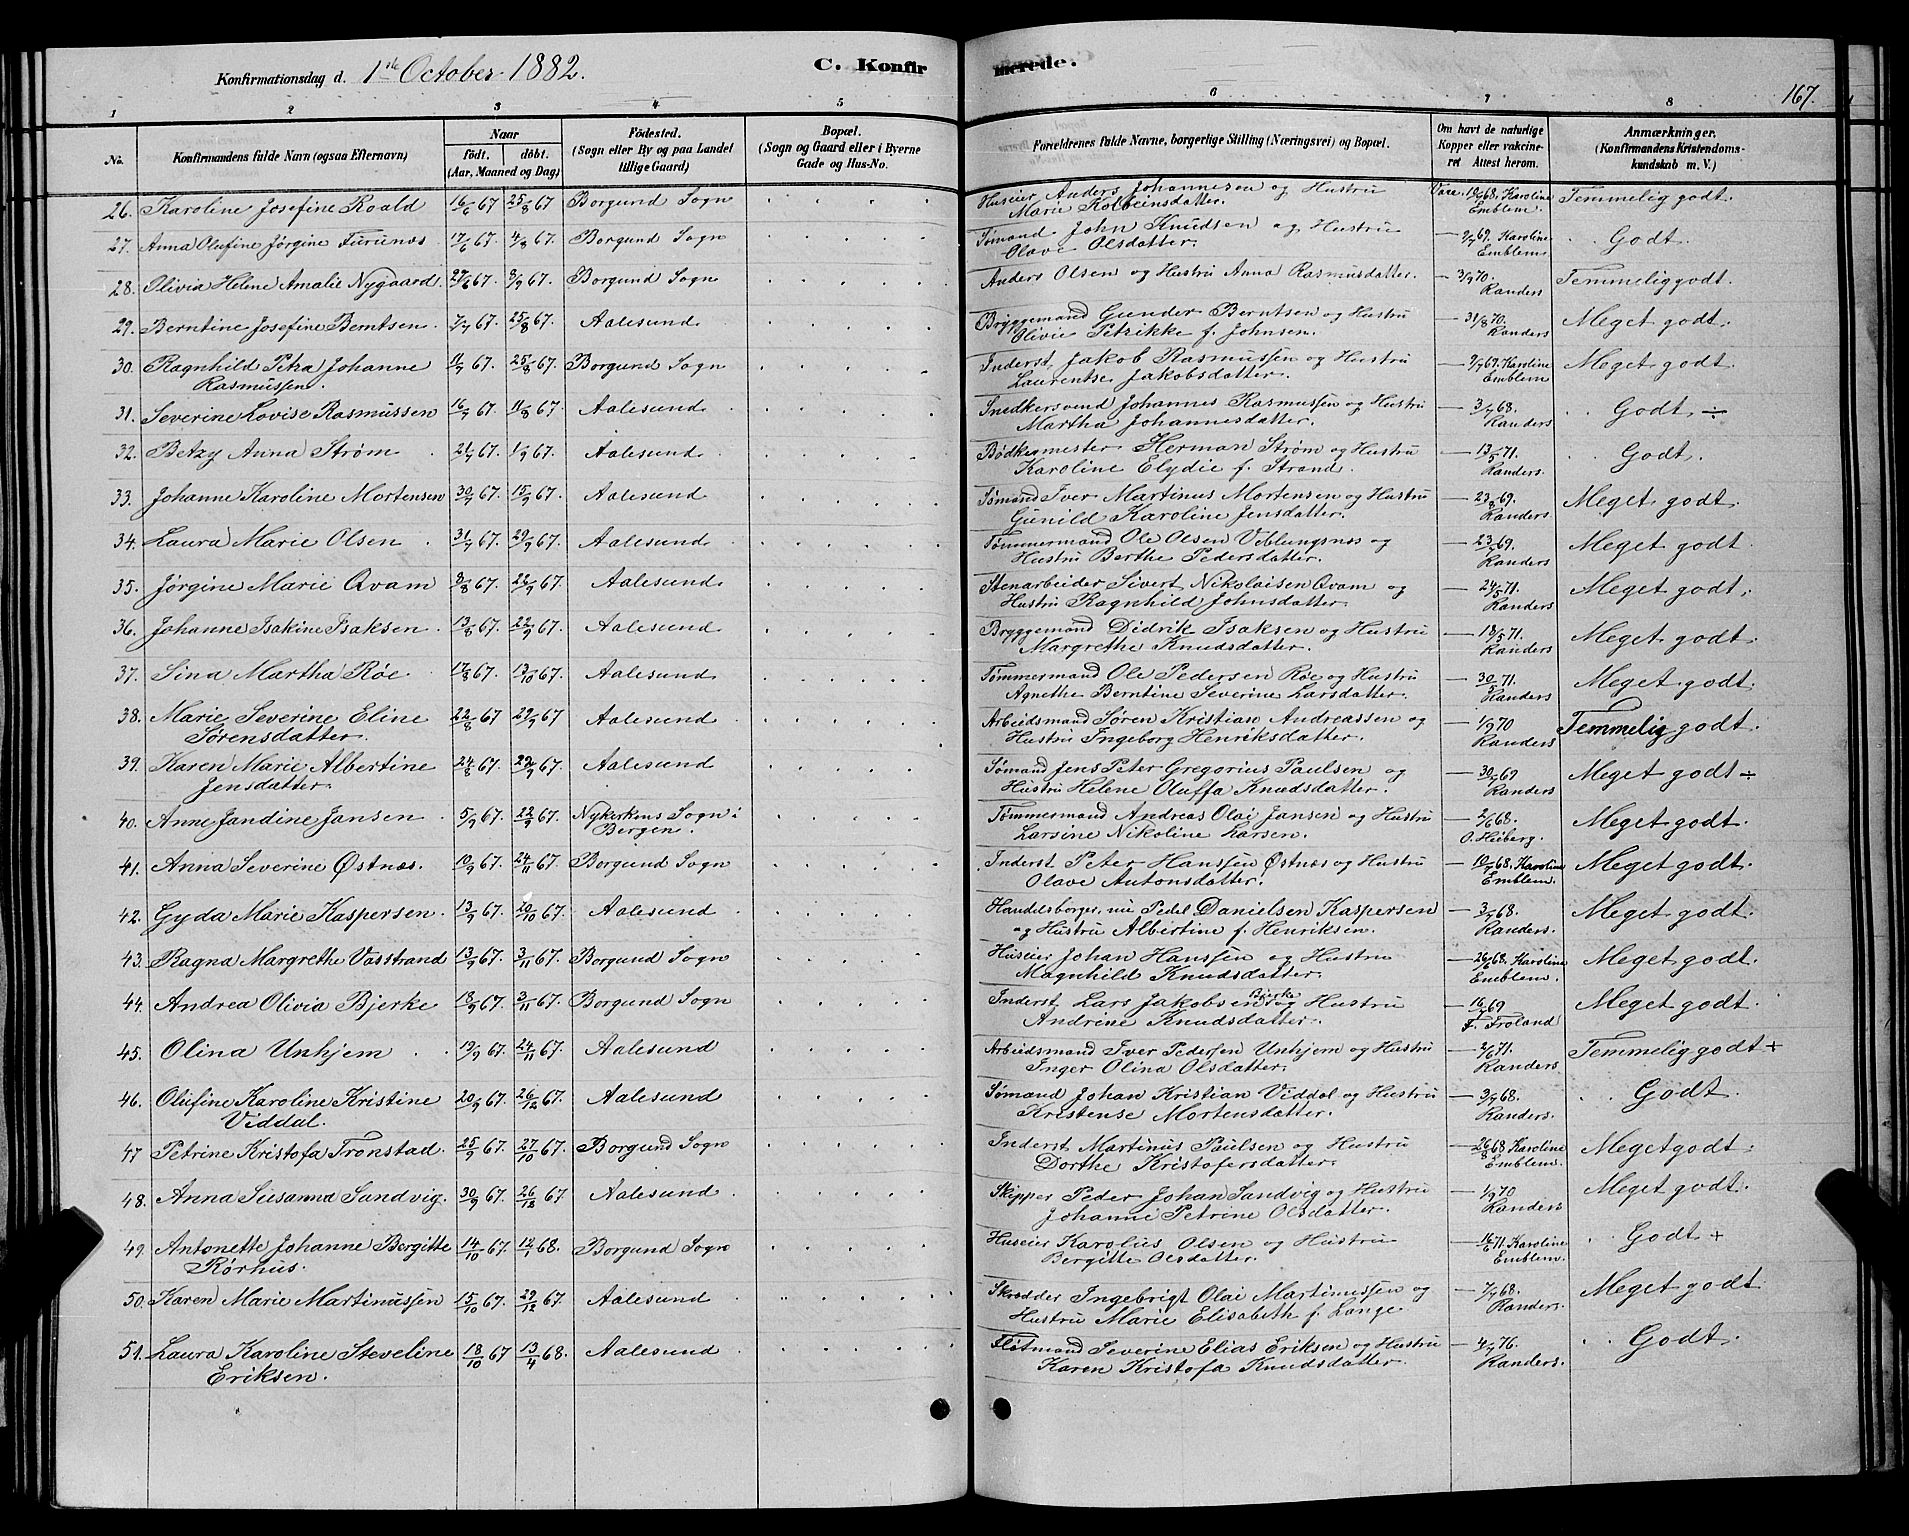 Konfirmationsdag d. 1ste October 1882. C. Konfirmerede. 167.
1 2 3 4 5 6 7 8
No. Konfirmandens fulde Navn (ogsaa Efternavn) Naar födt. döbt. (Aar, Maaned og Dag) Födested. (Sogn eller By og paa Landet tillige Gaard) Bopæl. (Sogn og Gaard eller i Byerne Gade og Hus-No. Forældrenes fulde Navne, borgerlige Stilling (Næringsvei) og Bopæl. Om havt de naturlige Kopper eller vakcineret Attest herom. Anmærkninger. (Konfirmandens Kristendomskundskab m. V.)
26. Karoline Josefine Roald 16/6 67 25/8 67 Borgund Sogn Huseier Anders Johannesen og Hustru Vacc. 19/6 68. Karoline Temmelig godt.
Marie Kolbeinsdatter. Emblem.
27. Anna Olufine Jørgine Furunæs 17/6 67 4/8 67. Borgund Sogn Sømand John Knudsen og Hustru 69. Karoline Godt.
Olave Olsdatter. Emblem
28. Olivia Helene Amalie Nygaard 27/6 67. 8/9 67. Borgund Sogn Anders Olsen og Hustru Anna Rasmusdatter. 3/9 70. Temmelig godt.
Randers
29. Berntine Josefine Berntsen 7/7 67. 25/8 67. Aalesund Bryggemand Gunder Berntsen og Hustru 31/8 70. Meget godt.
Olivie Petrikke f. Johnsen. Randers
30. Ragnhild Petra Johanne 11/7 67. 25/8 67. Borgund Sogn Inderst Jakob Rasmussen og Hustru 69. Karoline Meget godt.
Rasmussen. Laurentse Jakobsdatter. Emblem
31. Severine Lovise Rasmussen 16/7 67. 11/8 67. Aalesund Snedkersvend Johannes Rasmussen og Hustru 3/7 68. Godt ÷
Martha Johannesdatter. Randers
32. Betzy Anna Strøm 21/7 67. 1/9 67. Aalesund Bødkermester Herman Strøm og Hustru 13/5 71. Godt.
Karoline Elydie f. Strand. Randers.
33. Johanne Karoline Mortensen 30/7 67. 15/9 67. Aalesund Sømand Iver Martinus Mortensen og Hustru 23/8 69. Meget godt.
Gunild Karoline Jensdatter. Randers.
34. Laura Marie Olsen 31/7 67. 29/9 67. Aalesund Tømmermand Ole Olsen Veblungsnæs og 69. Meget godt.
Hustru Berthe Pedersdatter. Randers.
35. Jørgine Marie Qvam 3/8 67. 22/9 67. Aalesund Stenarbeider Sivert Nikolaisen Qvam og 24/5 71. Meget godt.
Hustru Ragnhild Johnsdatter. Randers
36. Johanne Isakine Isaksen 13/8 67. 22/9 67. Aalesund Bryggemand Didrik Isaksen og Hustru 13/5 71. Meget godt.
Margrethe Knudsdatter. Randers
37. Sina Martha Røe 17/8 67. 13/10 67. Aalesund Tømmermand Ole Pedersen Røe og Hustru 30/5 71. Meget godt.
Agnethe Berntine Severine Larsdatter. Randers.
38. Marie Severine Eline 22/8 67 29/9 67 Aalesund Arbeidsmand Søren Kristian Andreassen og 1/9 70 Temmelig godt.
Sørensdatter. Hustru Ingeborg Henriksdatter. Randers
39. Karen Marie Albertine 24/8 67. 29/9 67. Aalesund Sømand Jens Peter Gregorius Paulsen og 69 Meget godt ÷
Jensdatter. Hustru Helene Oluffa Knudsdatter. Randers
40. Anne Jandine Jansen 5/9 67. 22/9 67. Nykirkens Sogn i Tømmermand Andreas Olai Jansen og Hustru 2/6 68. Meget godt.
Bergen. Larsine Nikoline Larsen. O. Heiberg.
41. Anna Severine Østnæs. 10/9 67. 24/11 67. Borgund Sogn Inderst Peter Hanssen Østnæs og Hustru 68. Karoline Meget godt.
Olave Antonsdatter. Emblem.
42. Gyda Marie Kaspersen. 13/9 67. 20/10 67. Aalesund Handelsborger, nu Pedel Danielsen Kaspersen 3/7 68. Meget godt.
og Hustru Albertine f. Henriksen. Randers.
43. Ragna Margrethe Vasstrand 13/9 67. 3/11 67. Borgund Sogn Huseier Johan Hanssen og Hustru 26/6 68. Karoline Meget godt.
Magnhild Knudsdatter. Emblem.
44. Andrea Olivia Bjerke 18/9 67. 3/11 67. Borgund Sogn Inderst Lars Jakobsen Bjerke og Hustru 69 Meget godt
Andrine Knudsdatter. F. Froland
45. Olina Unhjem 19/9 67. 24/11 67. Aalesund Arbeidsmand Iver Pedersen Unhjem og Hustru 2/6 71. Temmelig godt +
Inger Olina Olsdatter. Randers
46. Olufine Karoline Kristine 20/9 67. 26/12 67. Aalesund Sømand Johan Kristian Viddal og Hustru 3/7 68. Godt.
Viddal. Kristense Mortensdatter. Randers.
47 Petrine Kristofa Tronstad. 25/9 67. 27/10 67. Borgund Sogn Inderst Martinus Paulsen og Hustru 26/8 68 Karoline Meget godt.
Dorthe Kristofersdatter. Emblem.
48. Anna Susanna Sandvig. 30/9 67. 26/12 67. Aalesund Skipper Peder Johan Sandvig og Hustru 1/9 70 Meget godt.
Johanne Petrine Olsdatter. Randers
49. Antonette Johanne Bergitte 14/10 67. 68. Borgund Sogn Huseier Karolus Olsen og Hustru 16/6 71. Karoline Godt +
Rørhus. Bergitte Olsdatter. Emblem.
50. Karen Marie Martinussen 15/10 67. 29/12 67. Aalesund Skrædder Ingebrigt Olai Martinussen og 7/7 68. Meget godt
Hustru Marie Elisabeth f. Lange Randers.
51. Laura Karoline Steveline 18/10 67 13/4 68. Aalesund Fløtmand Severine Elias Eriksen og Hustru 4/7 76. Godt.
Eriksen. Karen Kristofa Knudsdatter. Randers.